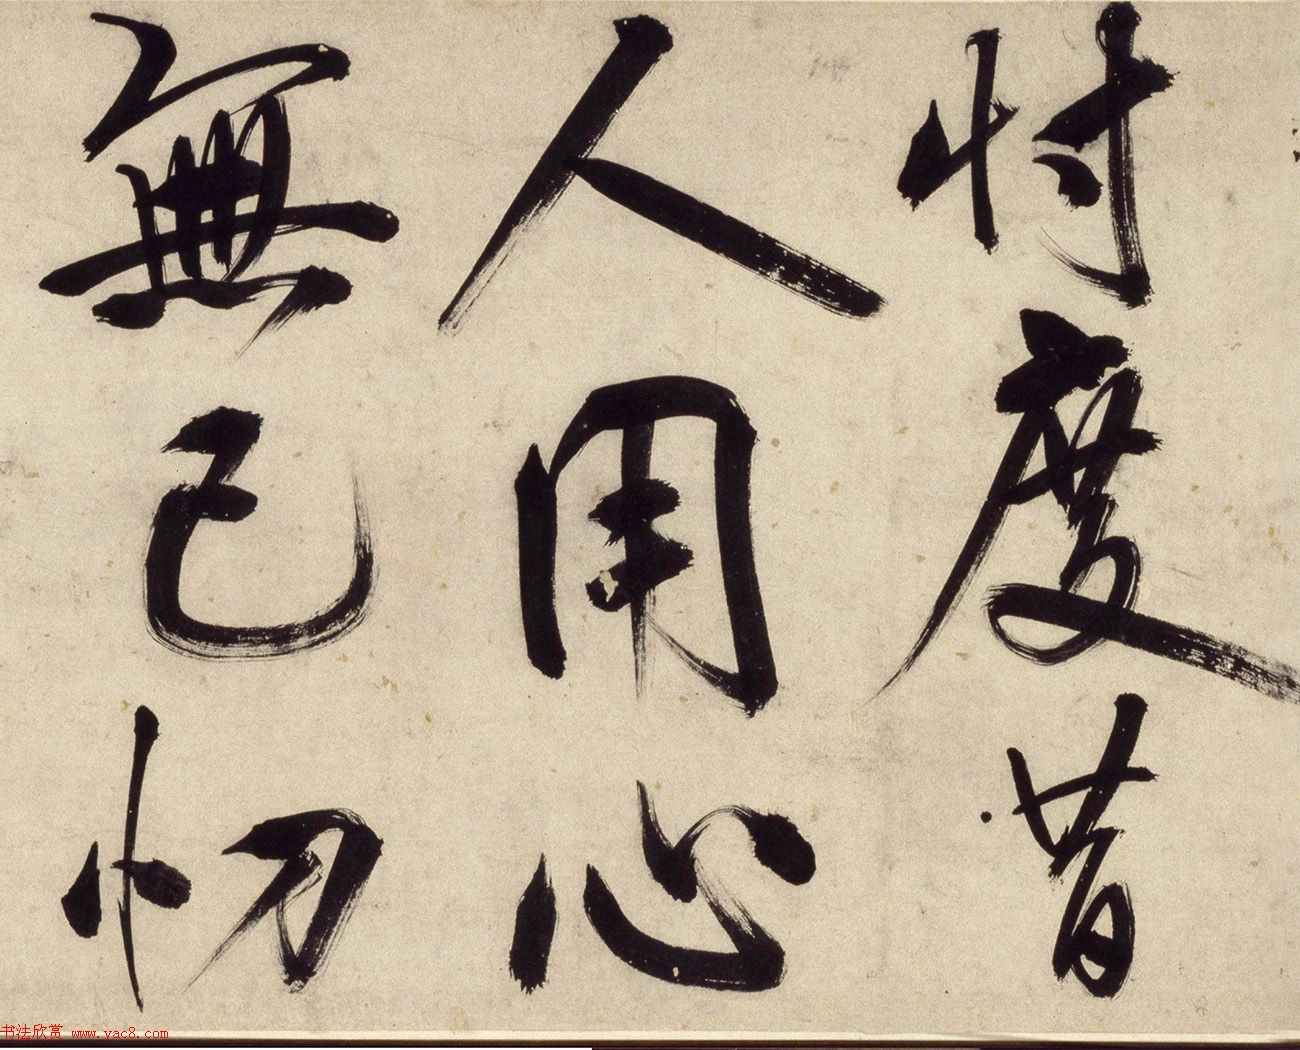 忖度昔
人用心
無已忉
书法欣赏 www.yac8.com